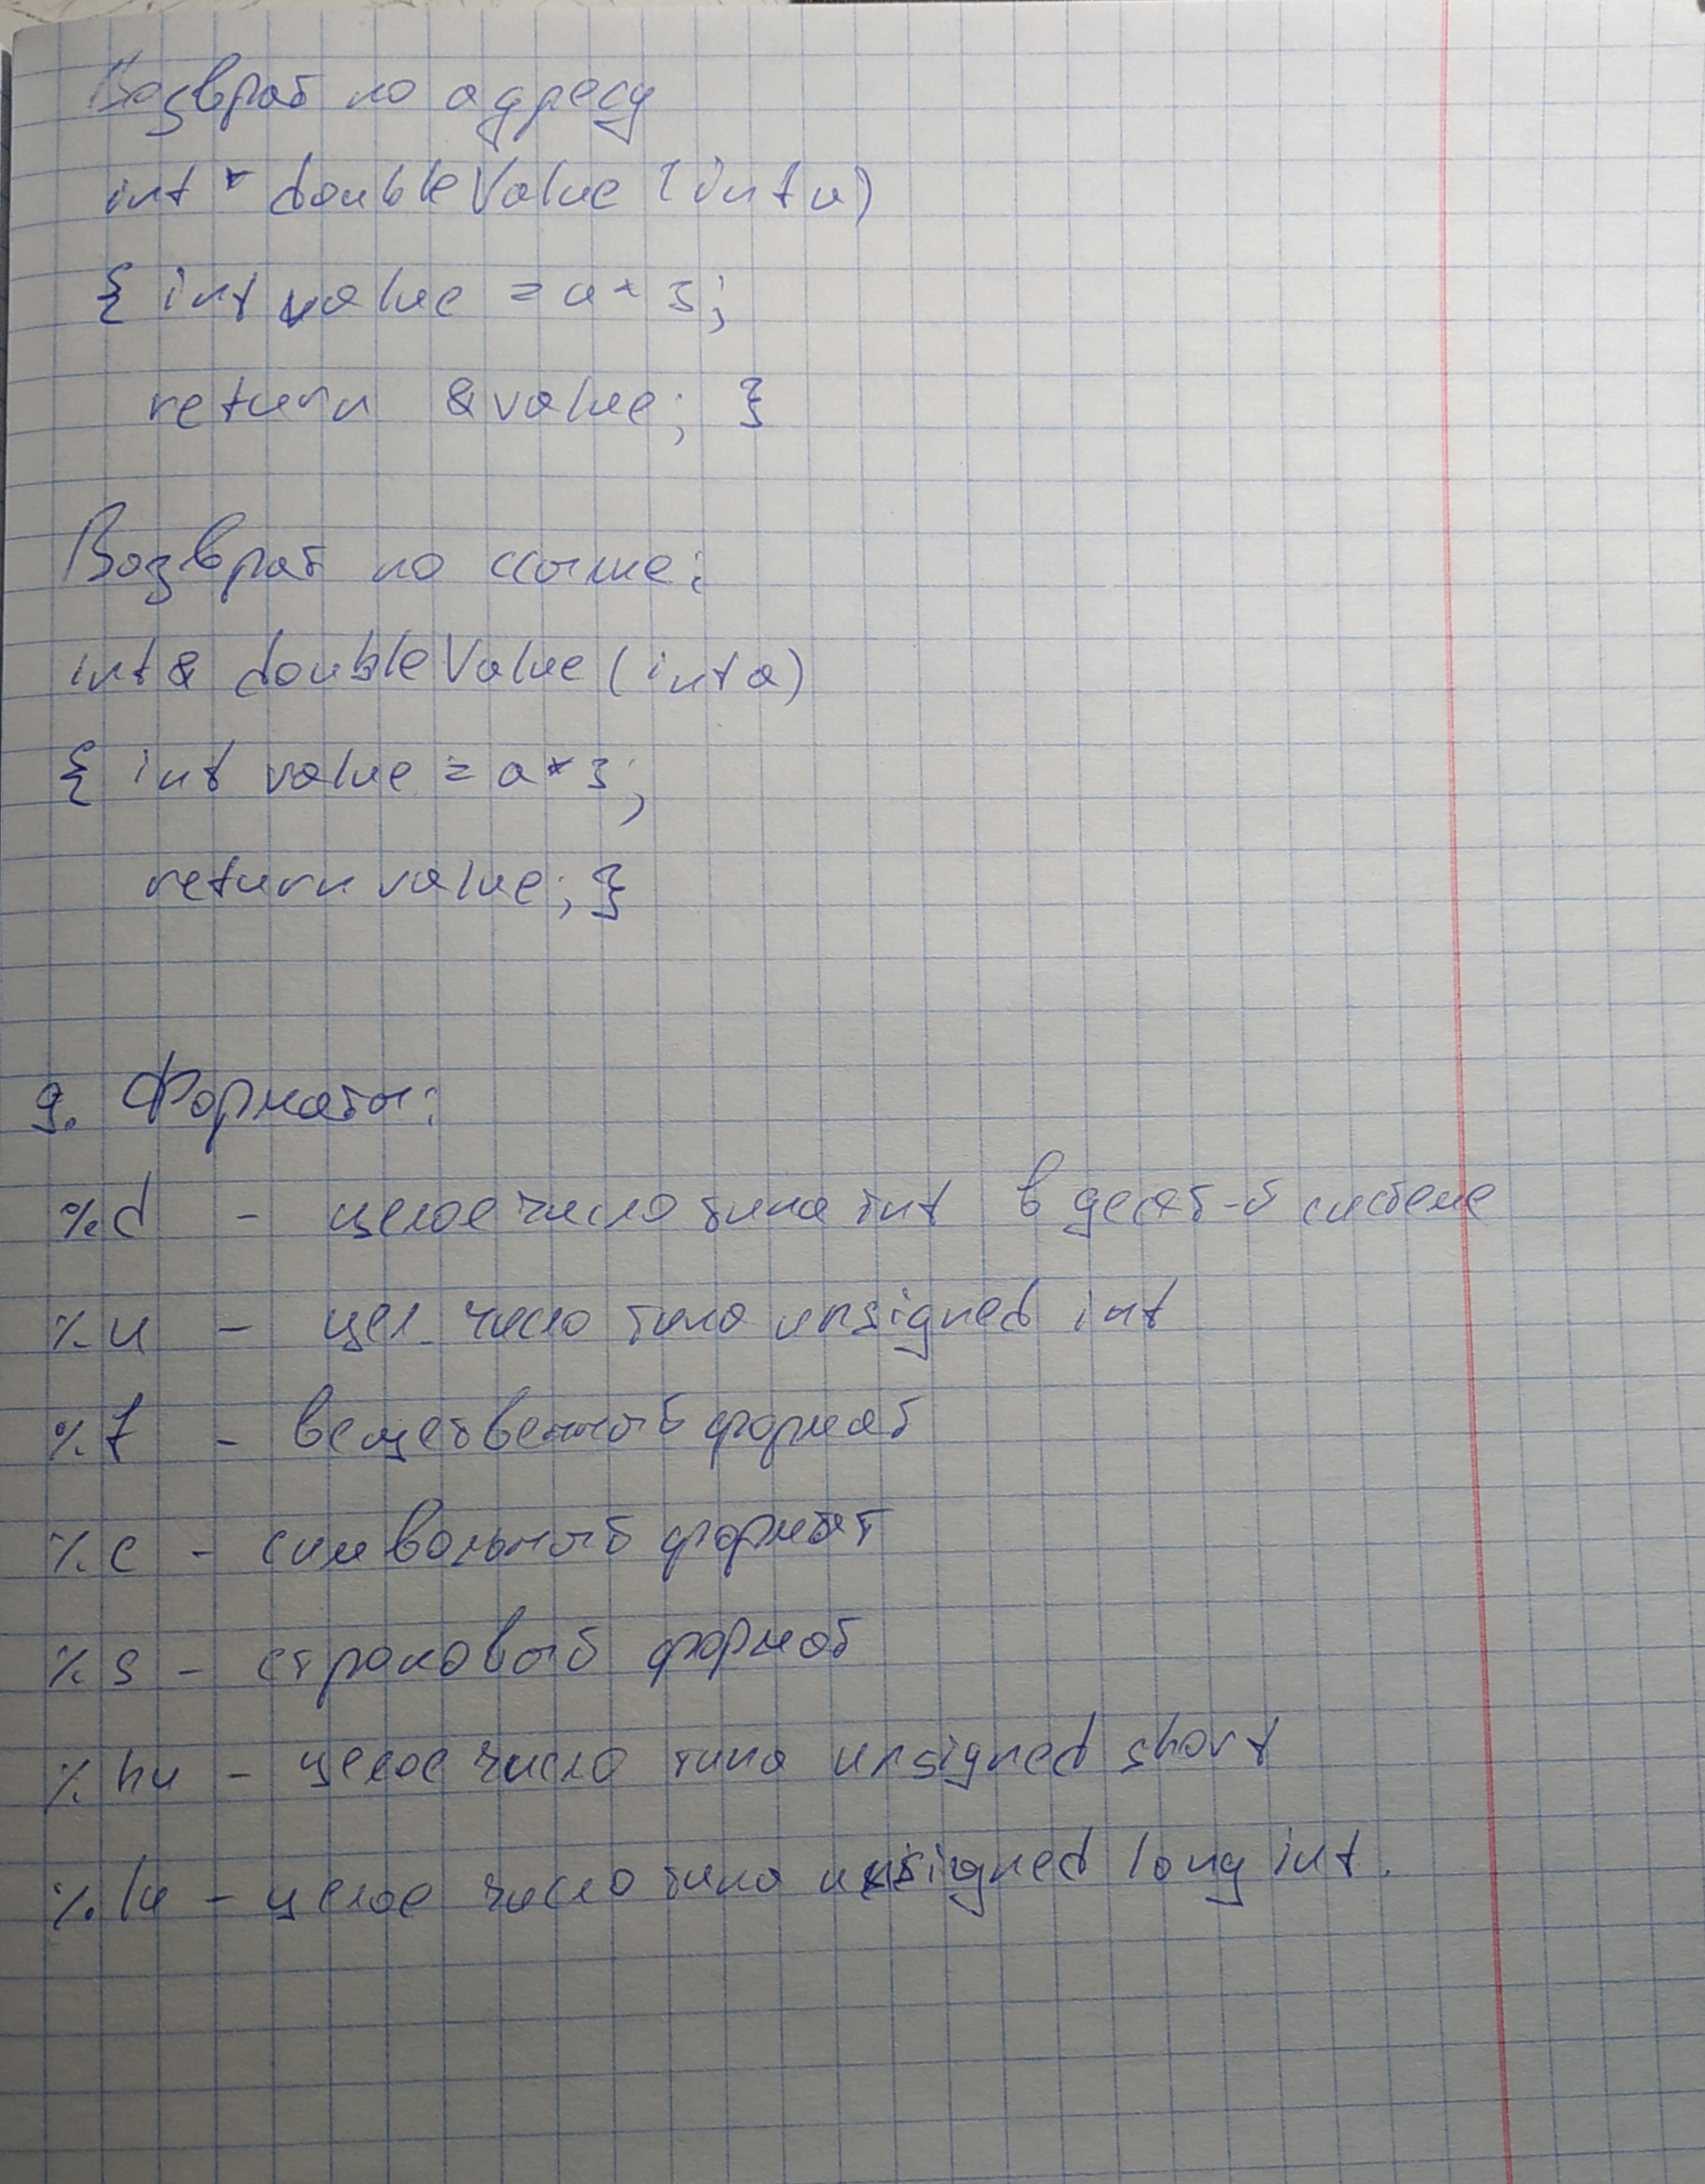 Возврат по адресу
int * doubleValue (int a)
{ int value = a * 3;
return &value; }
Возврат по ссылке:
int& doubleValue (int a)
{ int value = a * 3;
return value; }
9. Форматы:
%d - целое число типа int в десят-й системе
%u - цел. число типа unsigned int
%f - вещественный формат
%c - символьный формат
%s - строковый формат
%hu - целое число типа unsigned short
%lu - целое число типа unsigned long int.